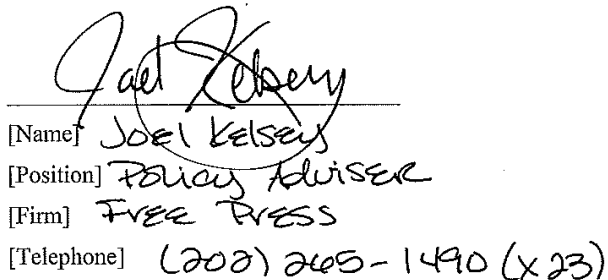 Joel Kelsey
[Name] Joel Kelsey
[Position] Policy Adviser
[Firm] Free Press
[Telephone] (202) 265-1490 (x23)